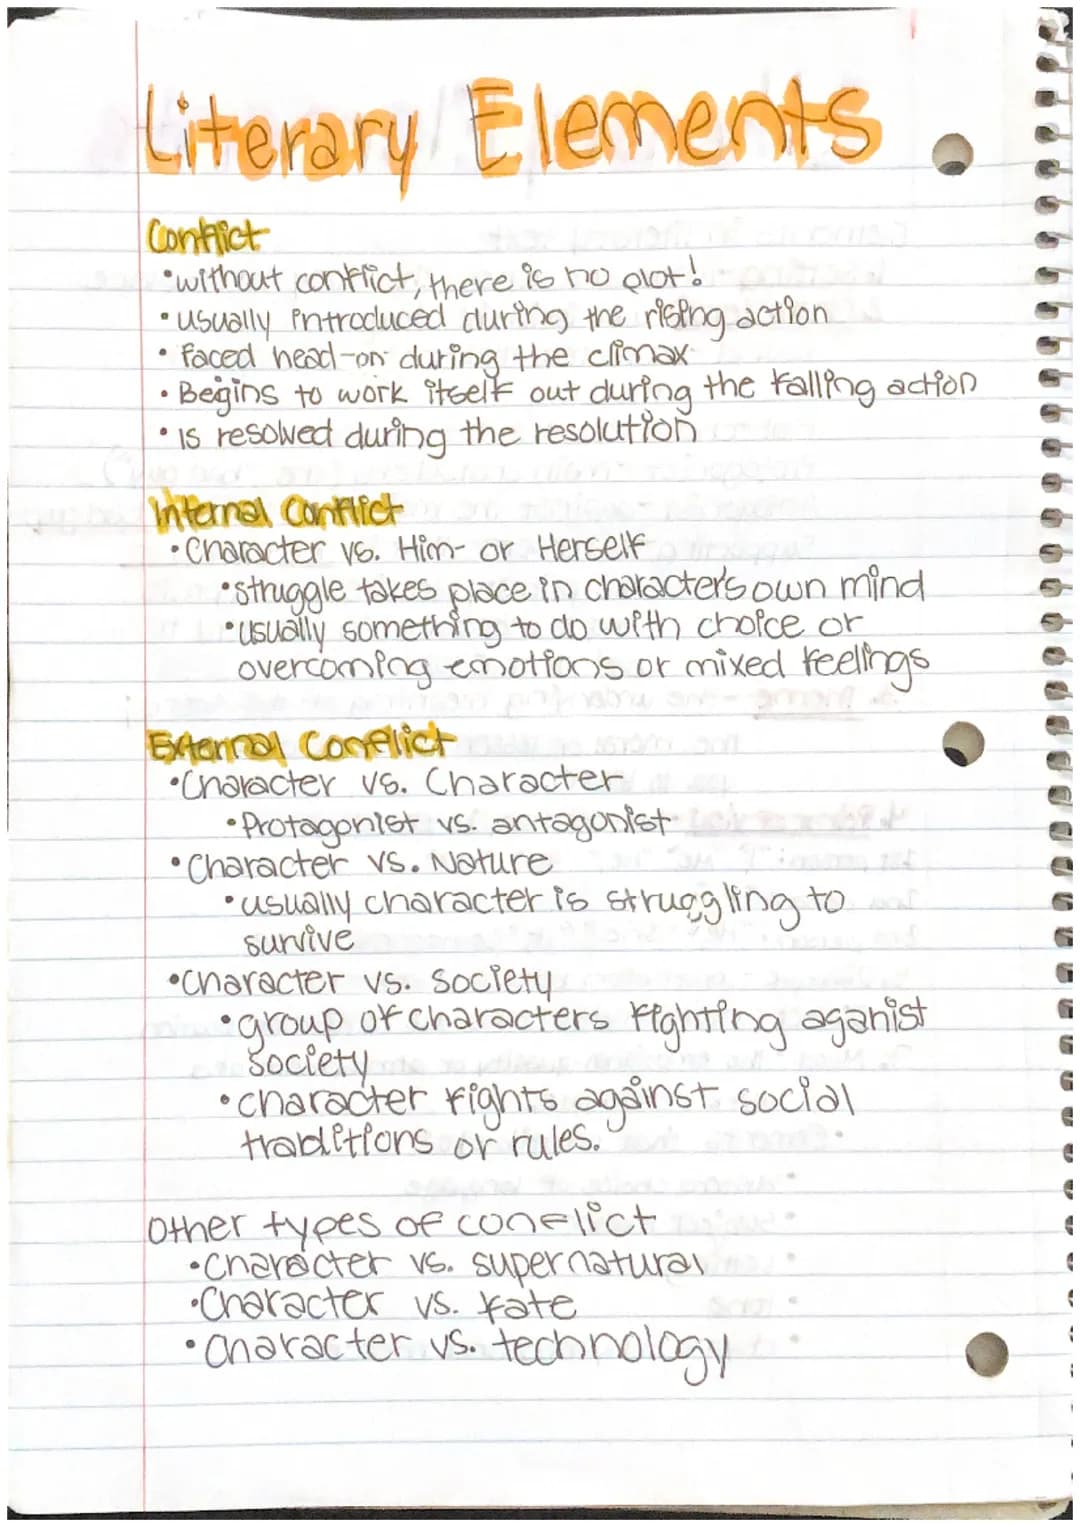 Literary Elements
Conflict
•without conflict, there is no plot!
•usually introduced during the rising action
•faced head-on during the climax
•Begins to work itself out during the falling action
•is resolved during the resolution
Internal Conflict
•Character vs. Him- or Herself
•struggle takes place in character's own mind
•usually something to do with choice or
overcoming emotions or mixed feelings
External Conflict
•Character vs. Character
•Protagonist vs. antagonist
•Character vs. Nature
•usually character is struggling to
survive
•Character vs. society
•group of characters fighting aganist
society
•character fights against social
traditions or rules.
Other types of conflict
•Character vs. supernatural
•Character vs. fate
•Character vs. technology